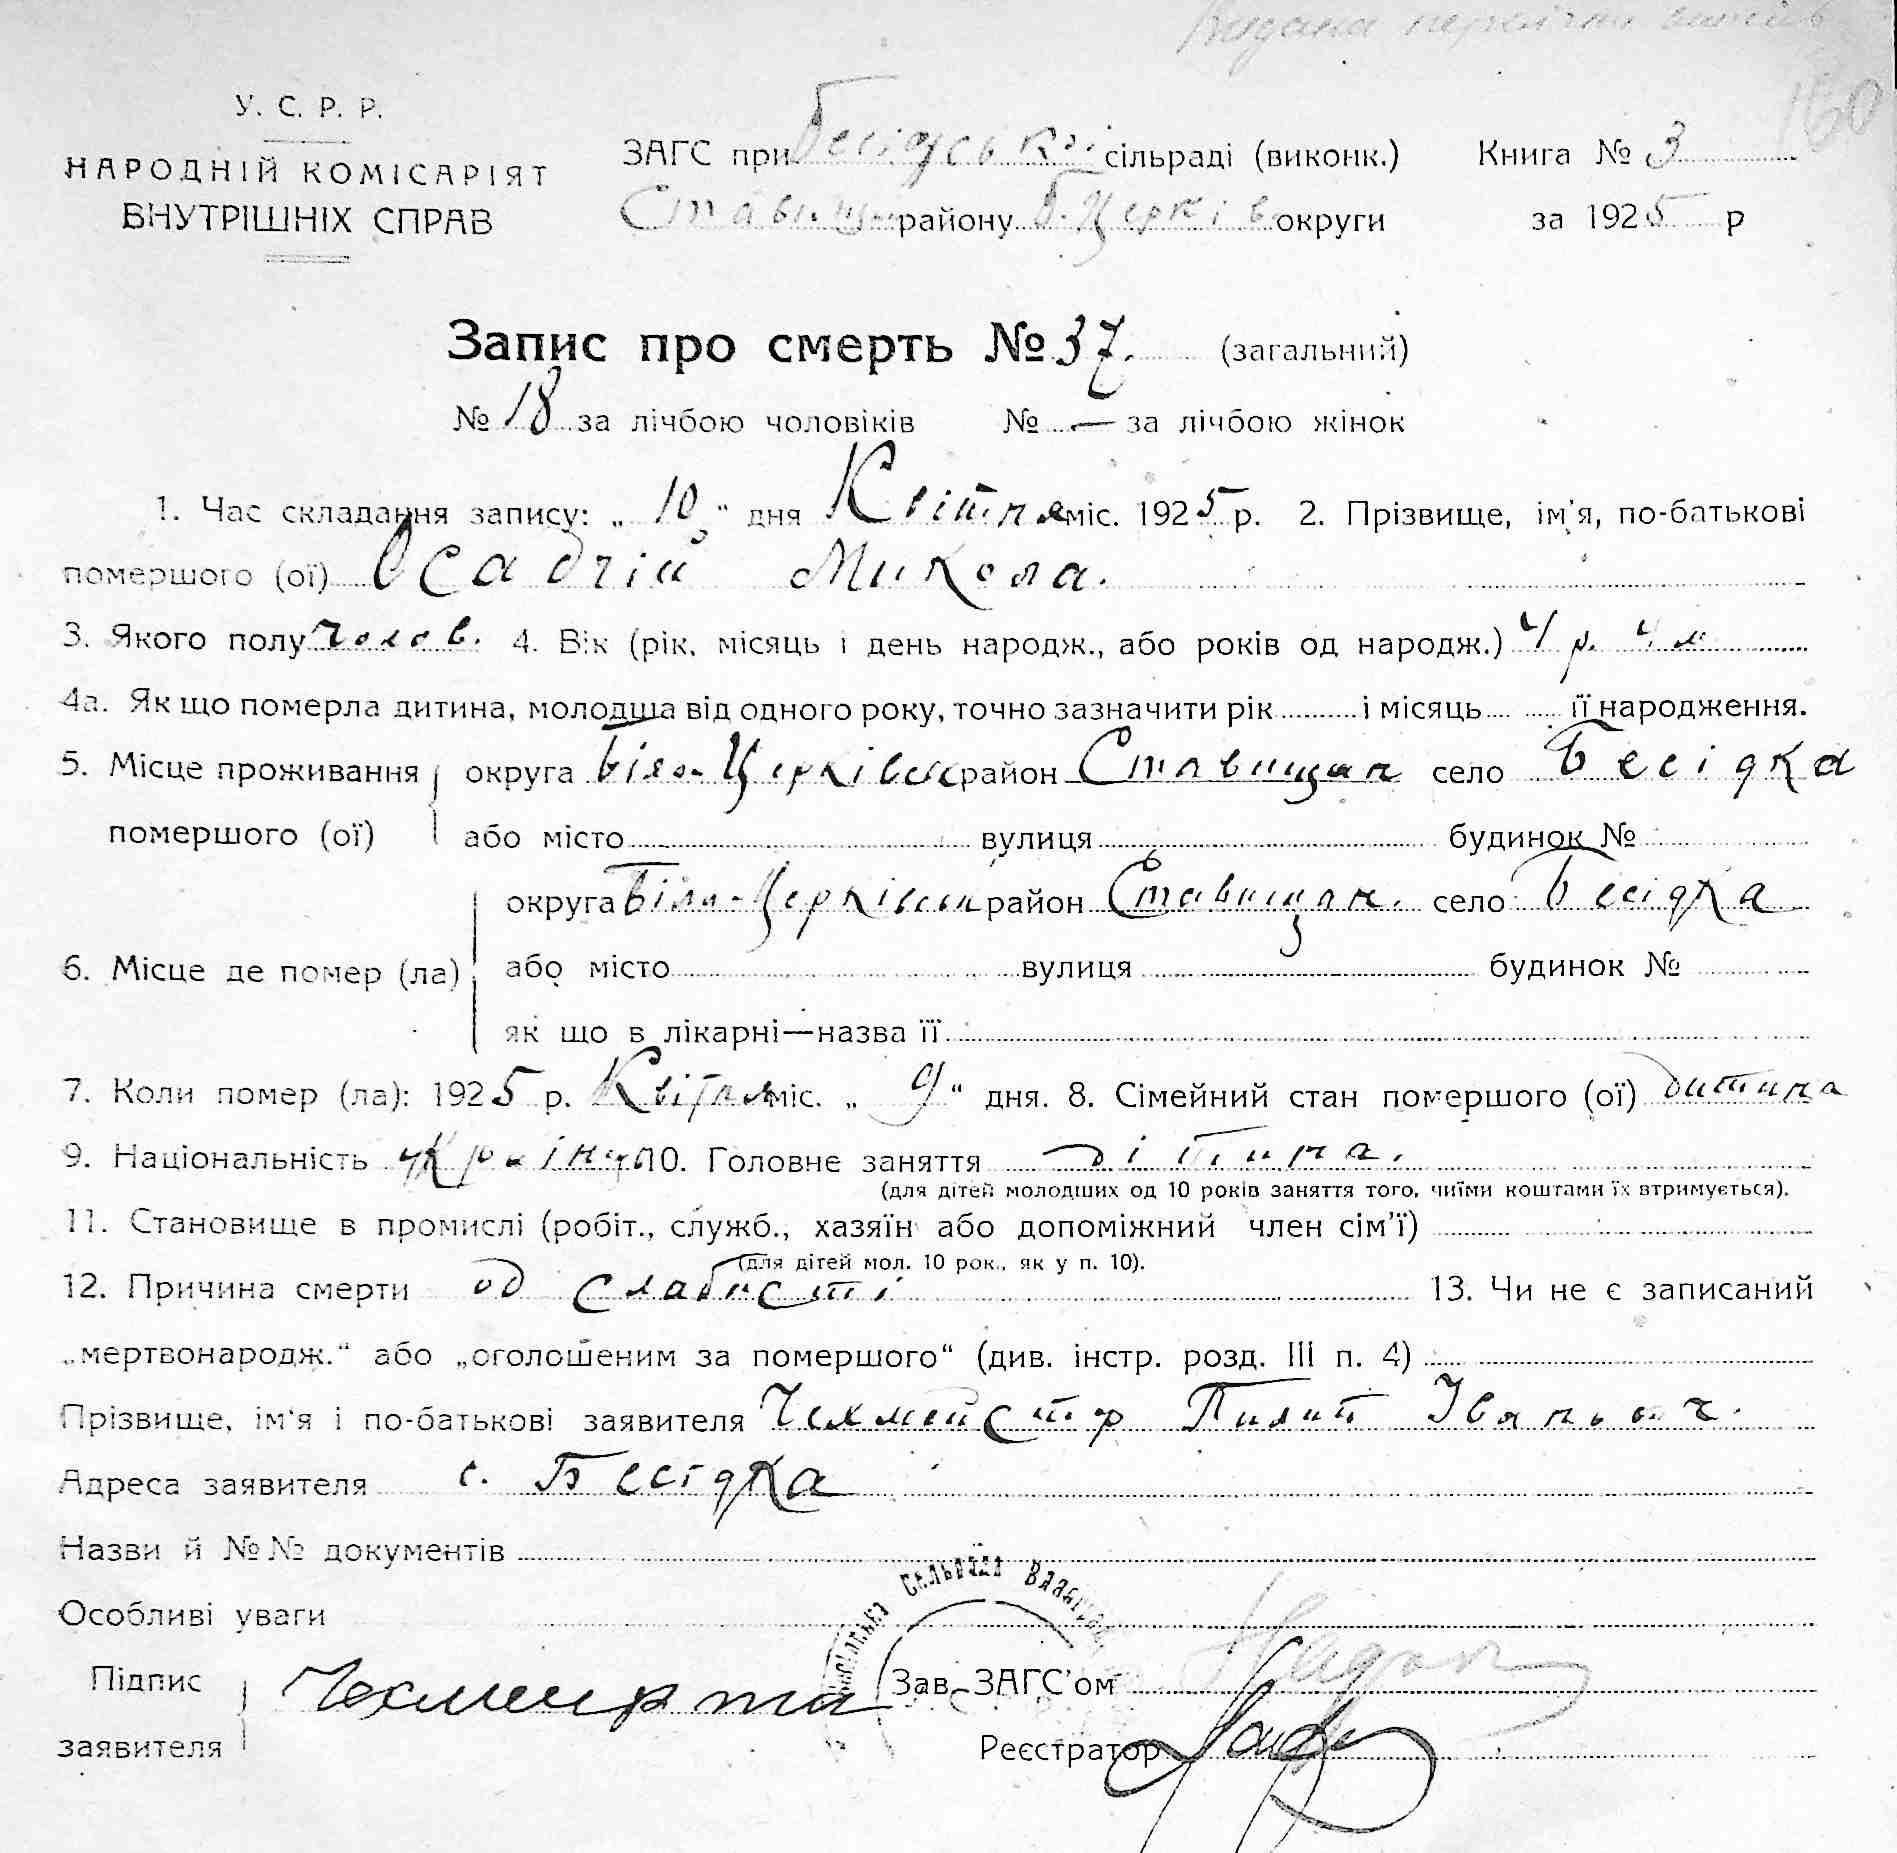 Видана
160
У. С. Р. Р.
НАРОДНІЙ КОМІСАРІЯТ
ВНУТРІШНІХ СПРАВ
ЗАГС при Бесідській сільраді (виконк.) Книга № 3
Ставищ. району Б. Церків. округи за 1925 р
Запис про смерть № 37. (загальний)
№ 18 за лічбою чоловіків № — за лічбою жінок
1. Час складання запису: „10“ дня Квітня міс. 1925 р. 2. Прізвище, ім'я, по-батькові
помершого (ої) Осадчій Микола.
3. Якого полу Голов. 4. Вік (рік, місяць і день народж., або років од народж.) 4 р. 4 м
4а. Як що померла дитина, молодша від одного року, точно зазначити рік і місяць її народження.
5. Місце проживання округа Біло-Церківськ район Ставищан село Бесідка
помершого (ої) або місто вулиця будинок №
округа Біло-Церківськ район Ставищан. село Бесідка
6. Місце де помер (ла) або місто вулиця будинок №
як що в лікарні—назва її
7. Коли помер (ла): 1925 р. Квітня міс. „9“ дня. 8. Сімейний стан помершого (ої) дитина
9. Національність україн 10. Головне заняття дітина.
(для дітей молодших од 10 років заняття того, чиїми коштами їх втримується).
11. Становище в промислі (робіт., служб., хазяїн або допоміжний член сім'ї)
(для дітей мол. 10 рок., як у п. 10).
12. Причина смерти од слабисті 13. Чи не є записаний
„мертвонародж.“ або „оголошеним за помершого“ (див. інстр. розд. III п. 4)
Прізвище, ім'я і по-батькові заявителя Чехмейстр Пилип Іванович.
Адреса заявителя с. Бесідка
Назви й №№ документів
Особливі уваги
Сельрада
Підпис Зав. ЗАГС'ом
заявителя Реєстратор